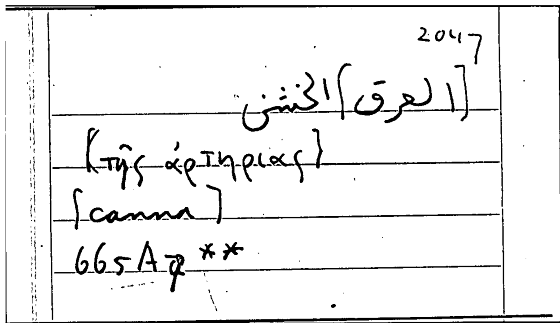 2047
[العرق] الخشن
[τῆς ἀρτηριας]
[canna]
665A7**